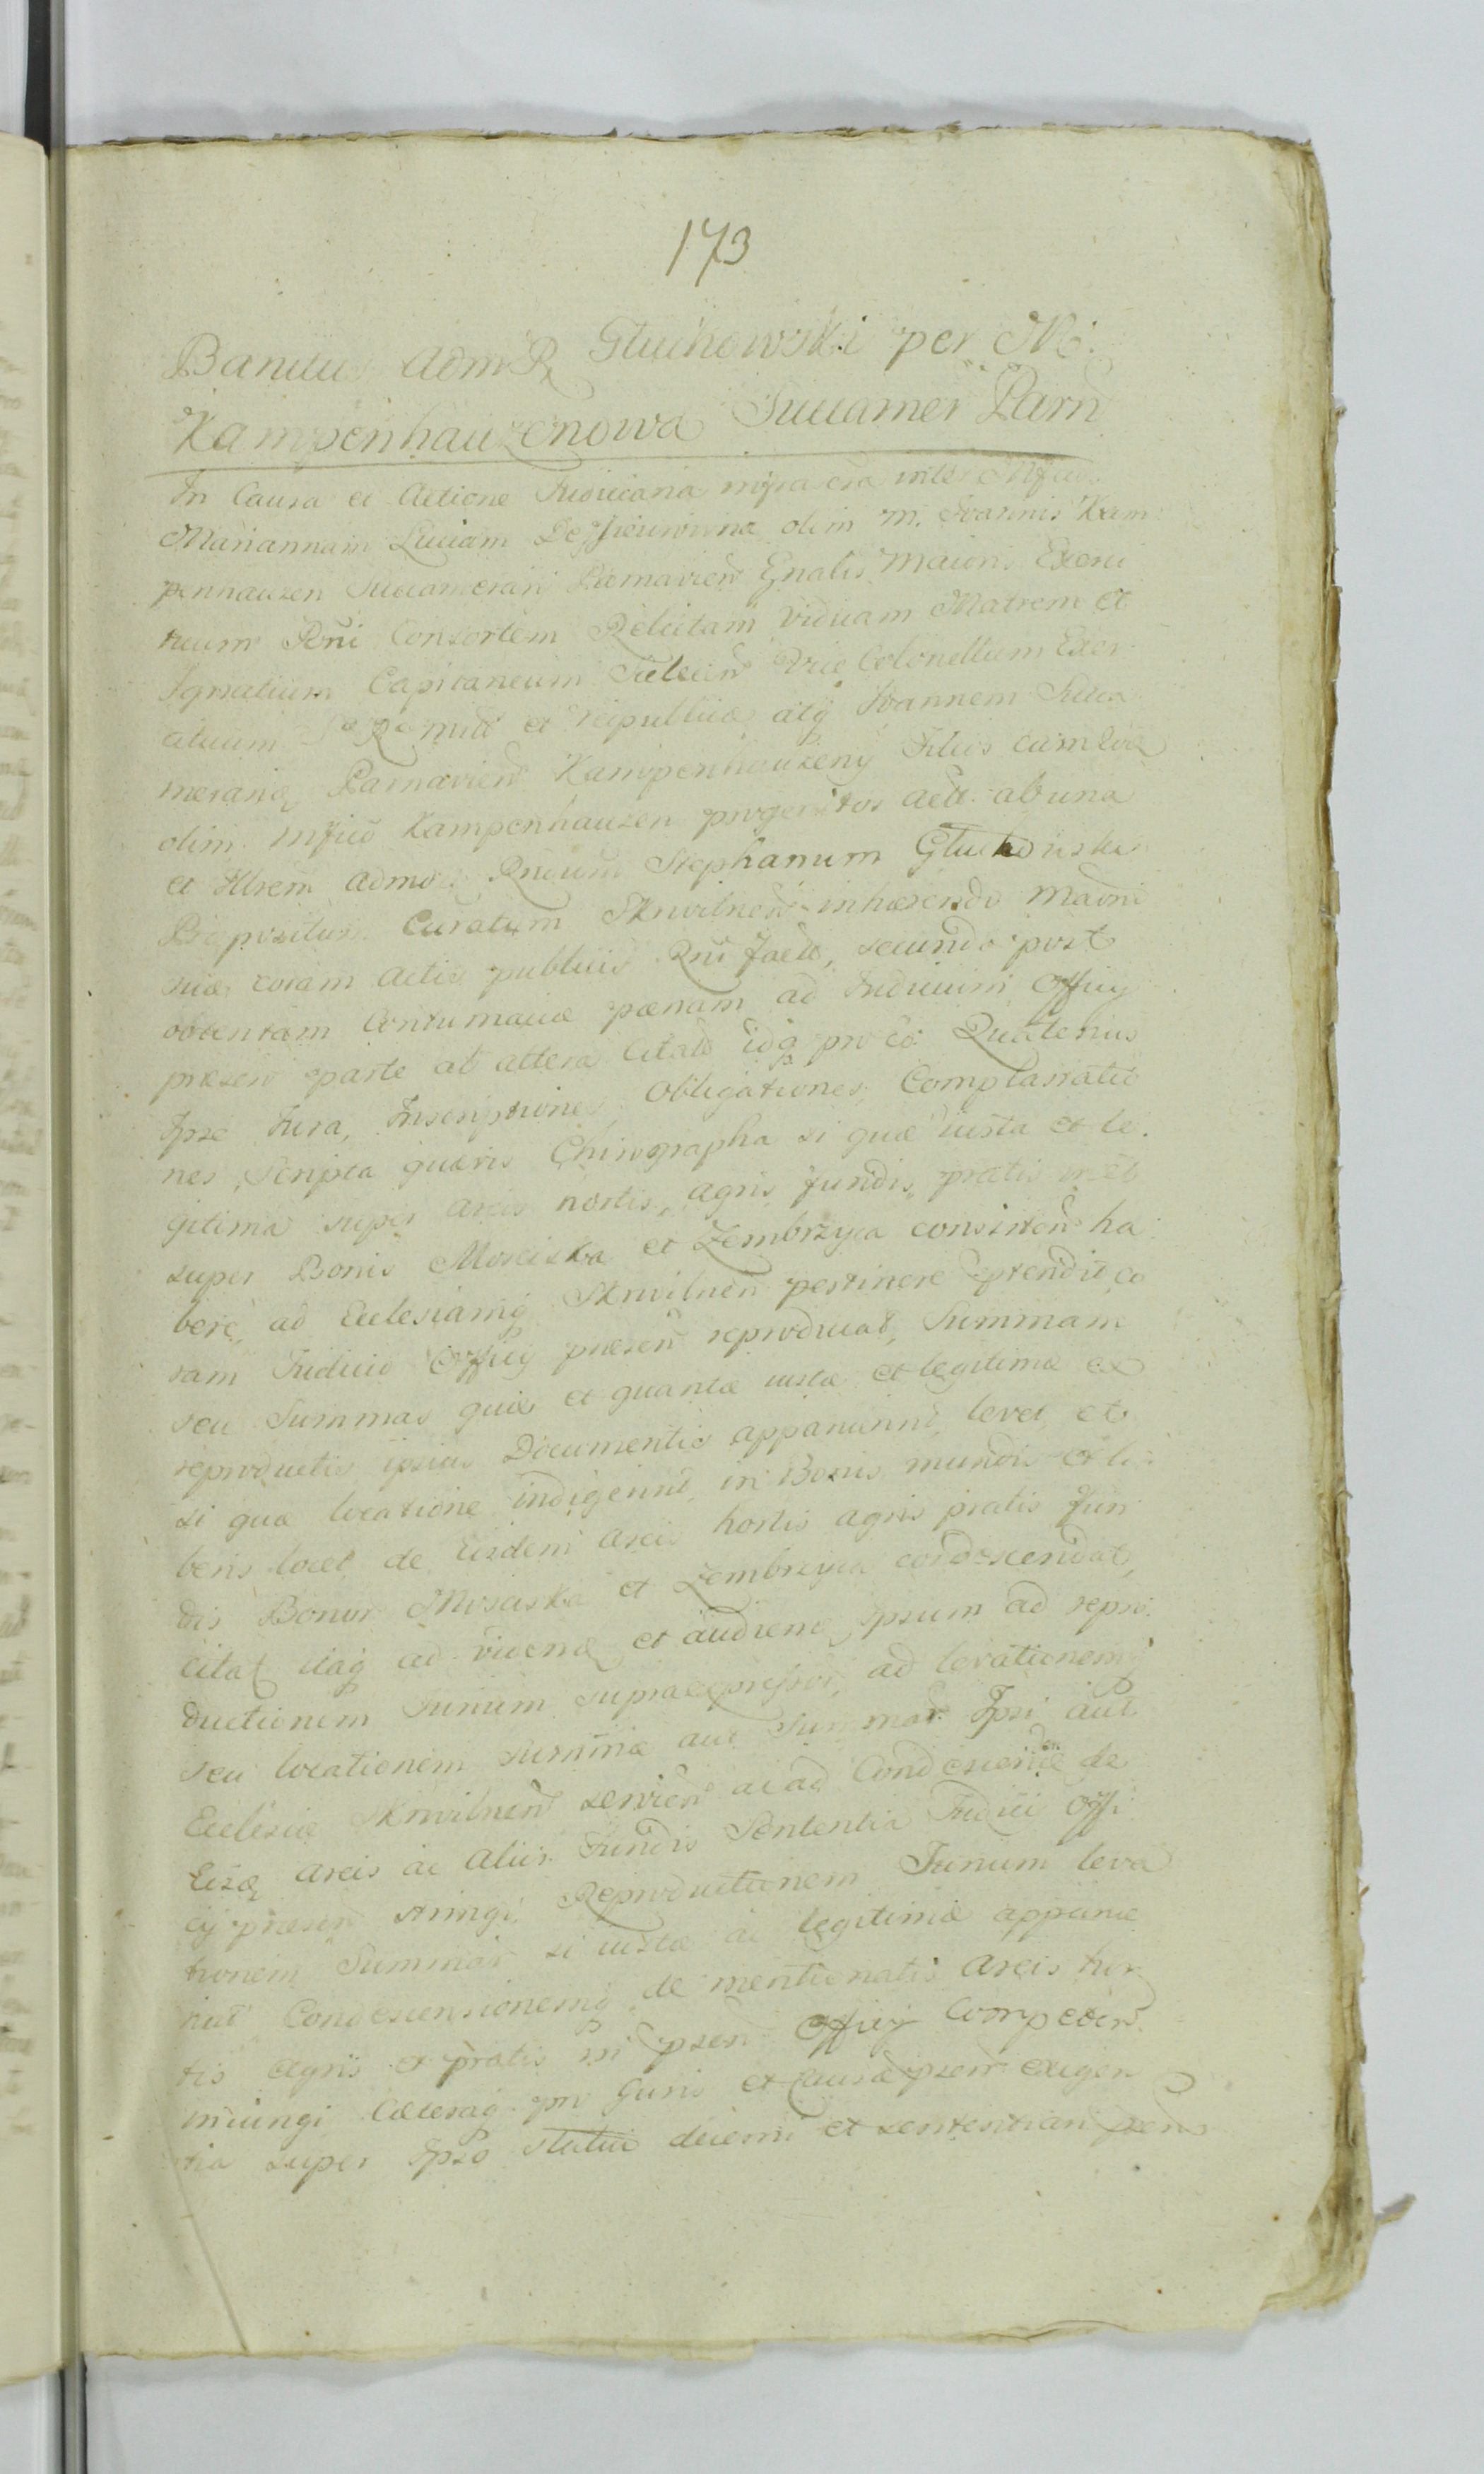 173
Banitus AdmR Gluchowski per M:
Kampenhauzenowa Succamer Parn
In Causa et Actione inter
Mariannam Luciam olim M. Ioannis Kam
penhauzen Succamerarij Parnavien Gnalis Maioris Exerci
tuum Regni Consortem Relictam Viduam Matrem et
Ignatium Capitaneum Vice Colonellum Exer
cituum et reipublicæ atq Ioannem Succa
Parnavien Kampenhauzeny Filios cum
olim Kampenhauzen progenitos act. ab una
et Rndum Stephanum Gluchowski
Præpositum Curatum Skrwilnen inhærendo
suæ coram Actis publicis fact, secundo post
obtentam Contumaciæ pænam ad Iudicium Officij
præsen parte ab altera Citat idq pro eo Quatenus
Ipse Iura, Inscriptiones, Obligationes Complanatio
nes, Scripta quævis Chirographa si quæ iusta et le
gitima super areis hortis, agris fundis, pratis
super Bonis Mosciska et Zembrzyca consisten ha
bere, ad Ecclesiamq Skrwilnen pertinere prætendit, co
ram Iudicio Officij præsen reproducat, Summam
seu Summas quæ et quantæ iustæ et legitimæ ex
reproductis ipsius Documentis apparuerint, levet, et
si qua locatione indigerint, in Bonis mundis et li
beris locet de Eisdem areis hortis agris pratis fun
dis Bonor Mosciska et Zembrzyca condescendat,
citat itaq ad videndum et audiendum Ipsum ad repro
ductionem Iurium supraexpressor, ad levationemq
seu locationem summæ aut Summar Ipsi aut
Ecclesiæ Skrwilnen servien ac ad Condescenden de
areis ac aliis Fundis Sententia Iudicii Offi
cij præsen stringi, Reproductionem Iurium leva
tionem Summar si iustæ ac legitimæ apparue
rint Condescensionemq de mentionatis areis hor
tis agris et pratis Ipsi præsen Officij Competen
iniungi Cæteraq pro Iuris et Causæ præsen exigen
tia super Ipso statui decerni et sententiari